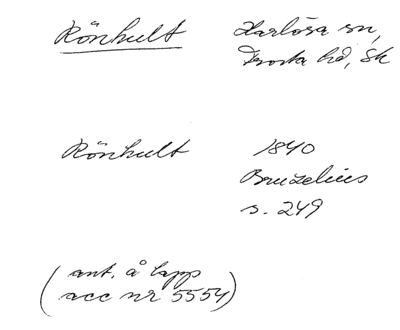 Rönhult Harlösa sn,
Frosta hd, Sk
Rönhult 1840
Bruzelius
s. 249
(ant. å lapp
acc nr 5554)